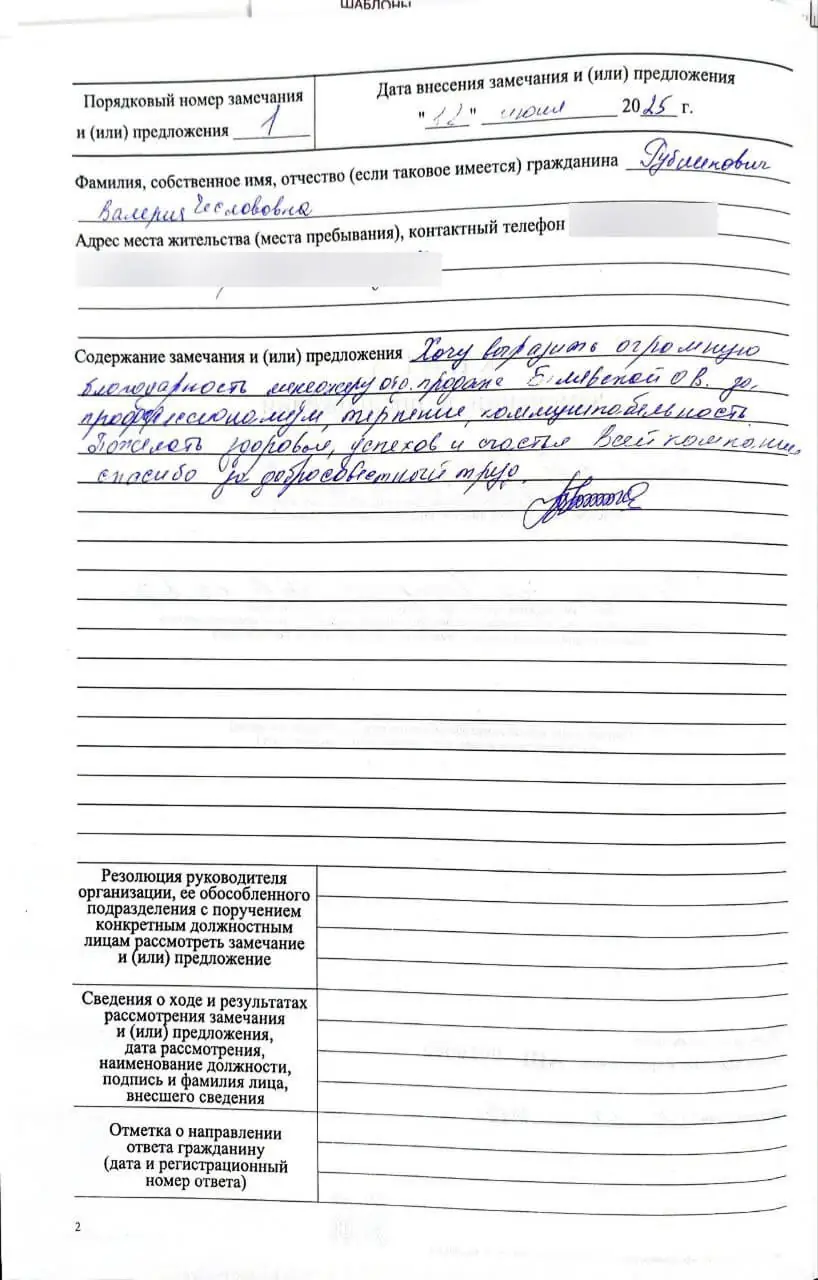 ШАБЛОНЫ
Порядковый номер замечания
и (или) предложения 1
Дата внесения замечания и (или) предложения
"12" июля 2025 г.
Фамилия, собственное имя, отчество (если таковое имеется) гражданина
Валерия Чеславовна
Адрес места жительства (места пребывания), контактный телефон
Содержание замечания и (или) предложения Хочу выразить огромную
благодарность менеджеру отд. продаж О.В. за
профессионализм, терпение, коммуникабельность.
Пожелать здоровья, успехов и счастья. Всей компании
спасибо за добросовестный труд.
Резолюция руководителя
организации, ее обособленного
подразделения с поручением
конкретным должностным
лицам рассмотреть замечание
и (или) предложение
Сведения о ходе и результатах
рассмотрения замечания
и (или) предложения,
дата рассмотрения,
наименование должности,
подпись и фамилия лица,
внесшего сведения
Отметка о направлении
ответа гражданину
(дата и регистрационный
номер ответа)
2